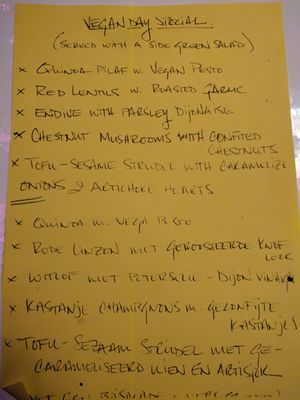 VEGAN DAY SPECIAL.
(SERVED WITH A SIDE GREEN SALAD)
* QUINOA PILAF W. VEGAN PESTO
* RED LENTILS W. ROASTED GARLIC
* ENDIVE WITH PARSLEY DIJONAISE
* CHESTNUT MUSHROOMS WITH CONFITED
CHESTNUTS
* TOFU-SESAME STRUDEL WITH CARAMELIZE
ONIONS & ARTICHOKE HEARTS
* QUINOA M. VEGA PESTO
* RODE LINZEN MET GEROOSTEERDE KNOF
LOOK
* WITLOF MET PETERSELIE - DIJON
* KASTANJE CHAMPGNONS M. GEKONFIJTE
KASTANJES
* TOFU-SEZAAM STRUDEL MET GE-
CARAMELISEERD UIEN EN ARTISJOK
MET